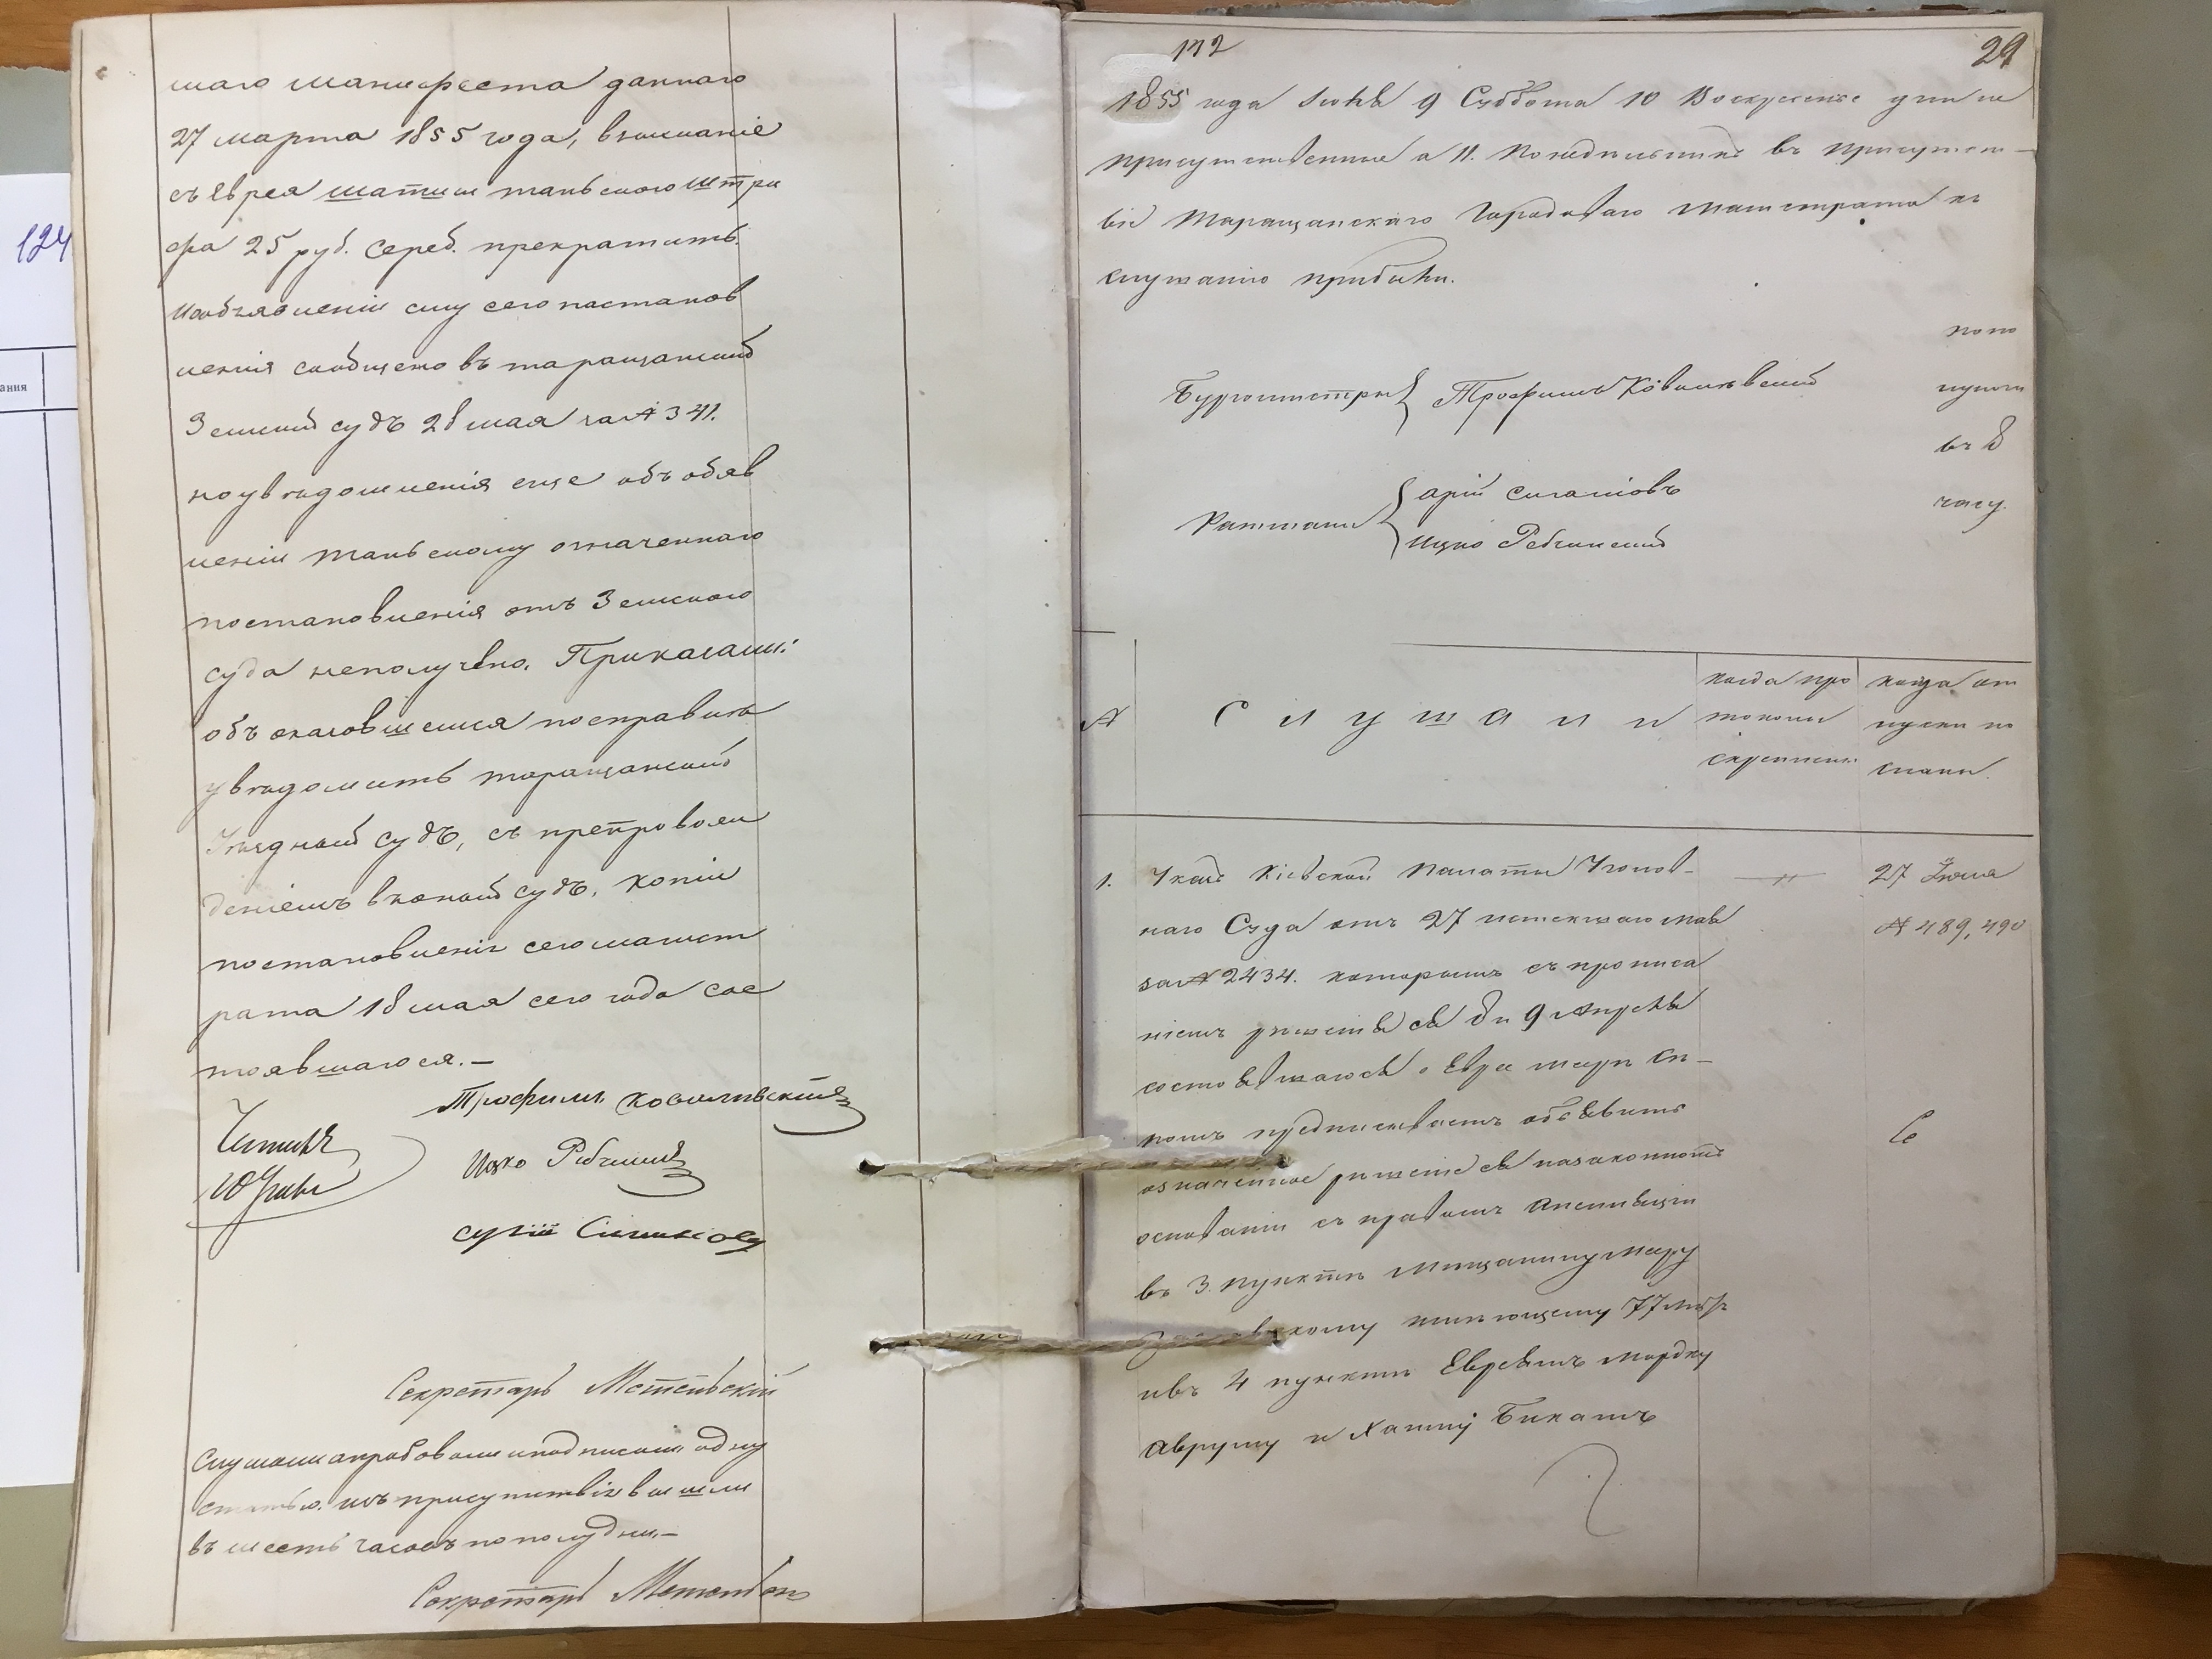 124
ания
шаго манифеста даннаго
27 марта 1855 года, взысканіе
съ Еврея Таньскаго штра
фа 25 руб. сереб. прекратить.
Иообъявленіи ему сего постанов
ленія сообщено въ таращанскій
Земскій судъ 28 мая за № 341.
ноувѣдомленія еще объ объяв
леніи Таньскому означеннаго
постановленія отъ Земскаго
суда неполучено. Приказали:
объ оказовшемся посправкѣ
увѣдомить таращанскій
Уѣздный судъ, съ препровож
деніемъ вконый судъ, копіи
постановленія сего магист
рата 18 мая сего года сос
тоявшагося.—
Трофимъ Ковалевскій
Ицко Ребчинскій
Секретарь
Слушали апробовали иподписали одну
статью. изъ присутствія вышли
въ шесть часовъ пополудни.—
Секретарь
172
29
1855 года Іюня 9 Суббота 10 Воскресенье дни не
присутственные а 11. Понедѣльникъ въ присутст-
віе Таращанскаго Городоваго Магистрата къ
слушанію прибыли.
попо
луночи
въ 8
часу.
Бургомистры { Трофимъ Ковалевскій
Ратманы {
Арій Силаковъ
Ицко Ребчинскій
№
Слушали
когда про
токолы
скреплены
когда от
пуски по
сланы.
1. Указъ Кіевской Палаты Уголов-
наго Суда отъ 27 истекшаго мая
за № 2434. которымъ съ прописа
ніемъ рѣшенія ея 9 Апрѣля
состоявшагося о Евреѣ
предписываетъ объявить
означенное рѣшеніе ея назаконномъ
основаніи съ правомъ апелляціи
въ 3. пунктѣ мѣщанину
имѣющему 77 лѣтъ
ивъ 4 пунктѣ Евреямъ Мордку
Авруму и Хаимѣ Бикамъ
—„—
27 Іюня
№ 489, 490